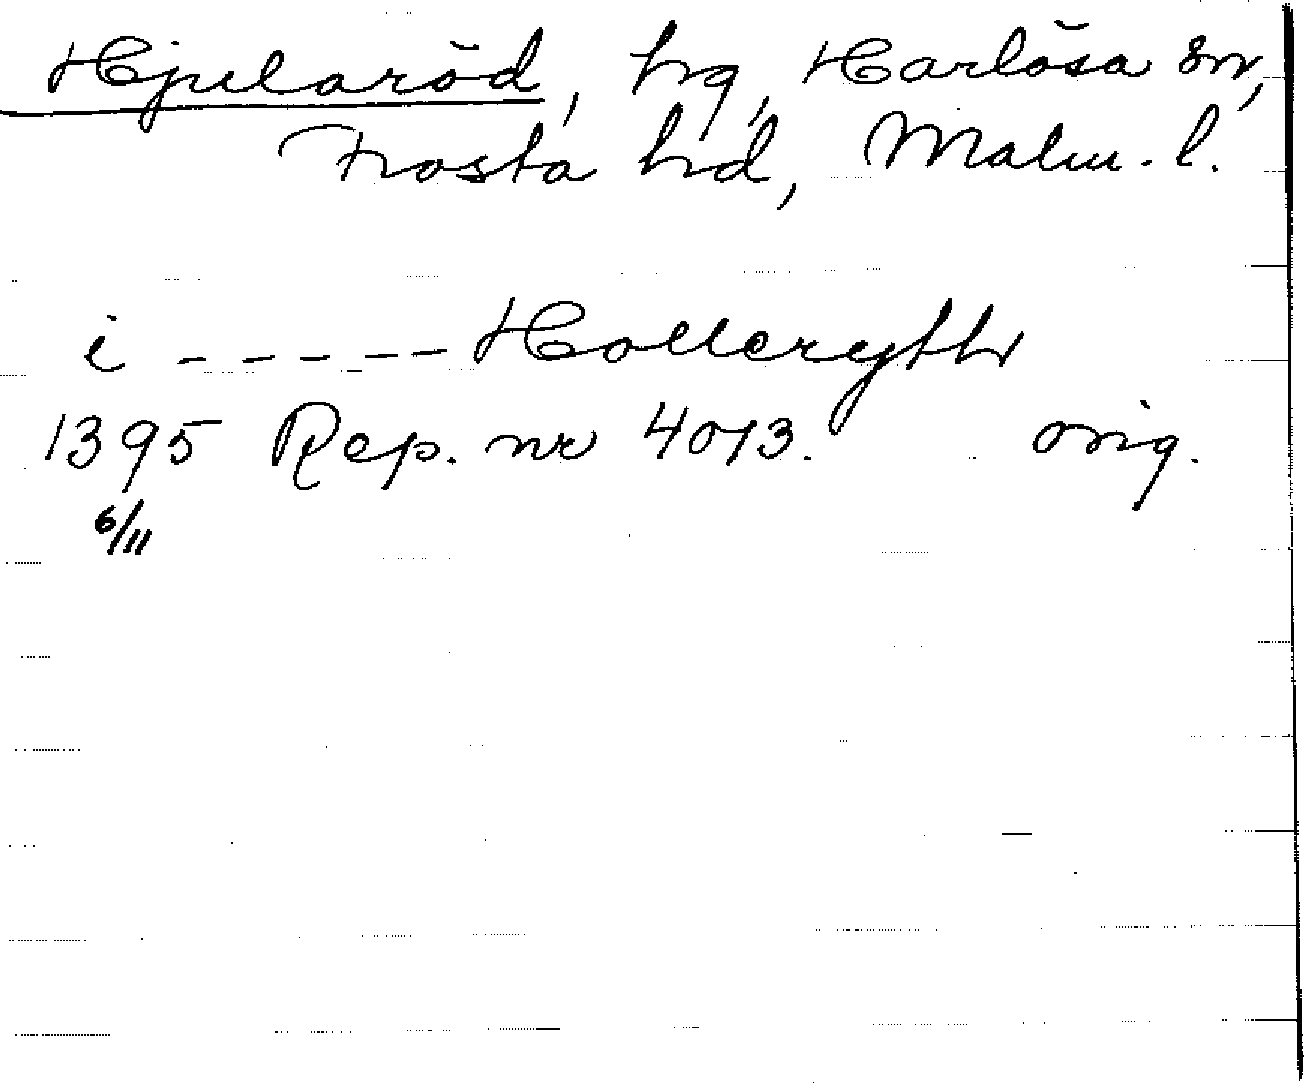 Hjularöd, hg, Harlösa sn,
Frosta hd, Malm. l.
i ----- Holleryth
1395 Rep. nr 4073. orig.
6/11